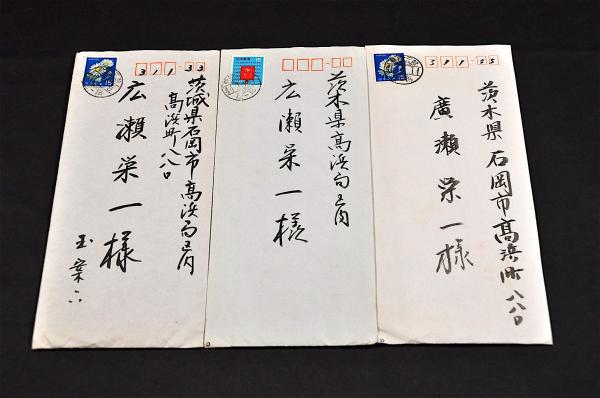 311-33
茨城県石岡市高浜局区内
高浜町八八〇
広瀬栄一様
玉案下
15
茨木県高浜局区内
広瀬栄一様
15
311-35
茨木県石岡市高浜町八八〇
廣瀬栄一様
15